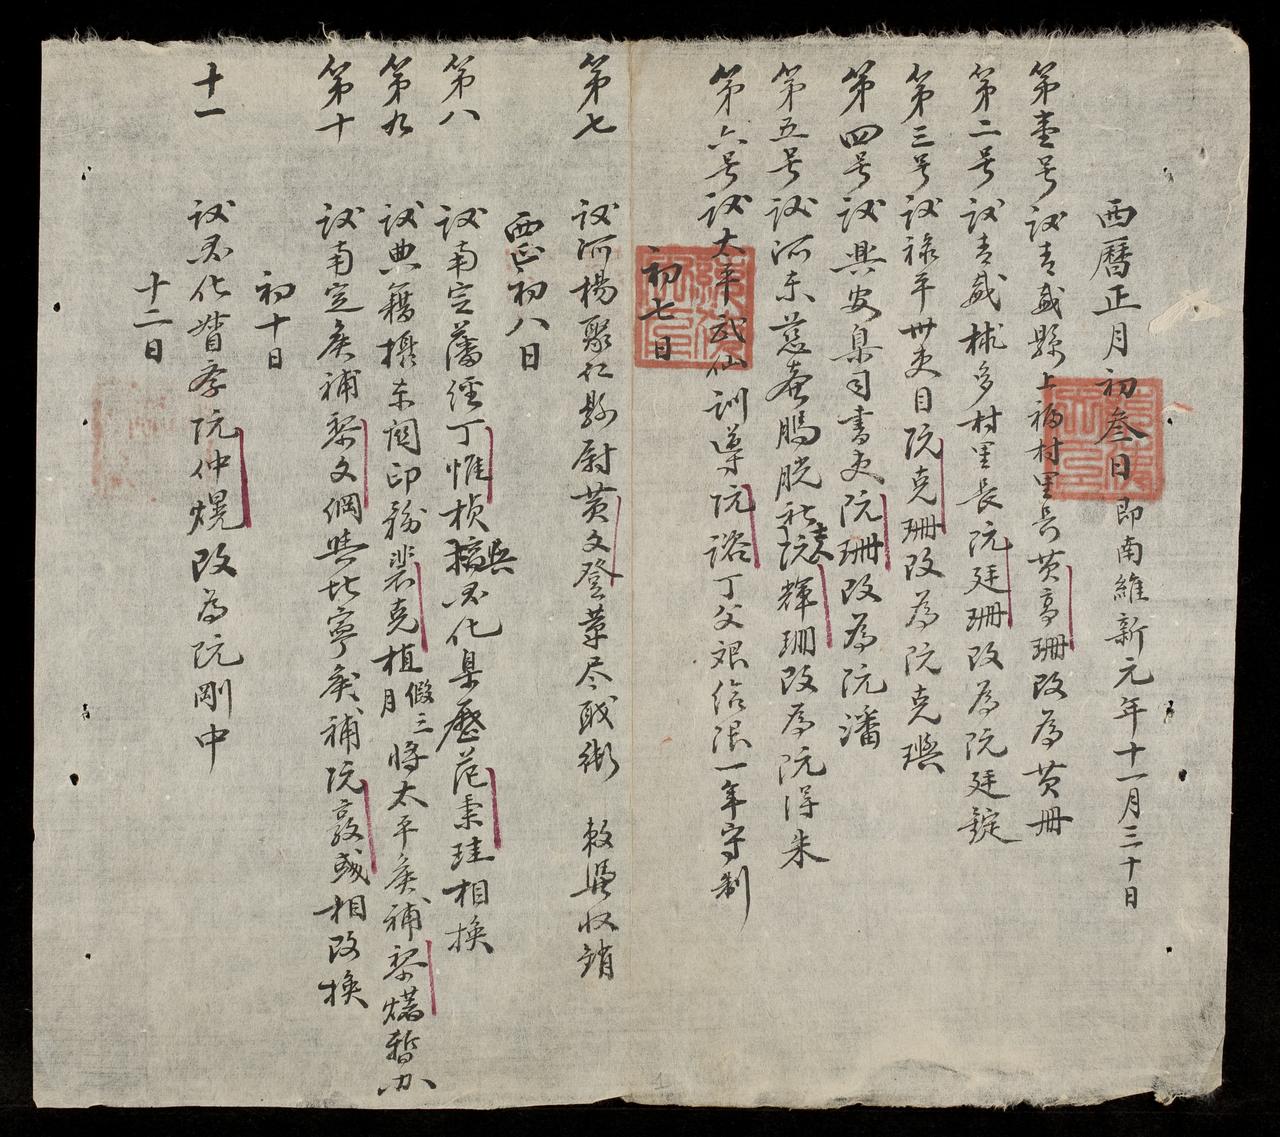 西曆正月初叁日即南維新元年十一月三十日
第壹号 議青威縣上福村里長黄高珊改為黄冊
第二号 議青威棫多村里長阮廷珊改為阮廷錠
第三号 議祿平州吏目阮克珊改為阮克璵
第四号 議興安臬司書吏阮珊改為阮潘
第五号 議河東慈菴鵬脱社 阮輝珊改為阮得朱
第六号 議太平武仙訓導阮諮丁父艰給限一年守制
初七日
第七 議河楊聚仁縣尉黄文登革尽職銜 敕憑收銷
西正初八日
第八 議南定藩經丁惟楨與 化臬歷范秉珪相換
第九 議典籍攝東關印務裴克植假三月將太平矦補黎𤏸暫办
第十 議南定矦補黎文綱與北寧矦補阮敦彧相改換
初十日
十一 議 化督孝阮仲熀改為阮剛中
十二日